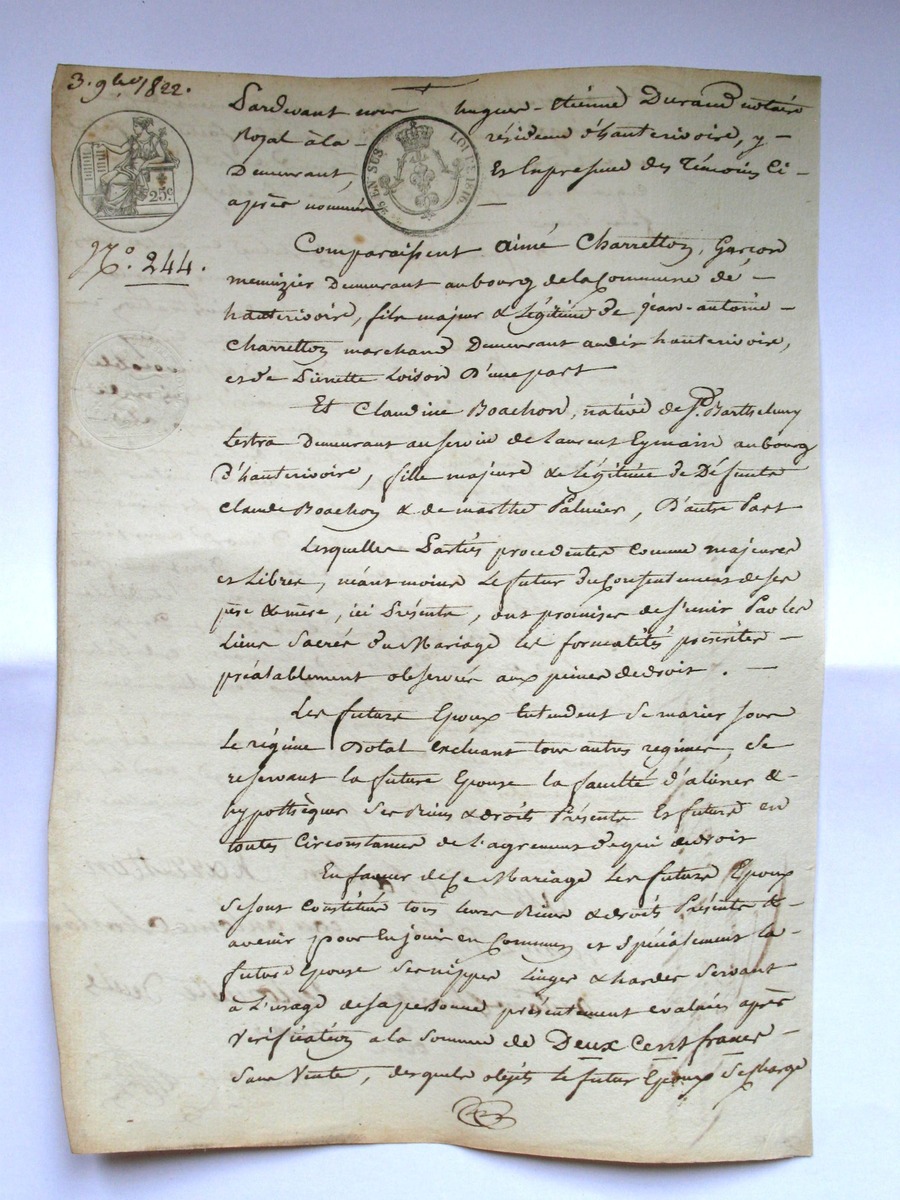 3. 9bre 1822.
Pardevant nous hugues-Etienne Durand notaire
Royal à la résidence d'hauterivoire, y
Demeurant, Et En présence des Témoins Ci-
après nommés
25 EN SUS LOI DE 1816.
25c.
N.° 244.
Comparaissent aimé Charretton, Garçon
menuizier Demeurant au bourg de la Commune de
hauterivoire, fils majeur & Légitime de jean-antoine
Charretton marchand Demeurant audit hauterivoire,
et de Pierrette Loison D'une part
Et Claudine Boachon, native de St. Barthelemy
Lestra Demeurant au service de Laurent Eymain au bourg
D'hauterivoire, fille majeure & Légitime de Défunts
Claude Boachon & de marthe Palmier, D'autre Part
Lesquelles Parties procedentes comme majeures
et Libres, néantmoins Le futur du Consentement de ses
père & mère, ici Présents, ont promises de s'unir Par les
Liens Sacrés du Mariage les formalités prescrites
préalablement observées aux peines de droit.
Les futurs Epoux Entendent se marier sous
Le régime Dotal excluant tous autres regimes, se
reservant la future Epouse la faculté d'aliéner &
hypothèquer Ses Biens & droits Présents Et futurs en
toutes Circonstances de l'agrement de qui de droit
En faveur de Ce Mariage Les futurs Epoux
Se sont Constitués tous leurs Biens & droits Présents &
avenir pour En jouir en Commun et spécialement la
future Epouse Ses nippes Linges & hardes Servant
à L'usage de sa personne présentement évalués après
Vérification à la somme de Deux Cent francs
Sans Vente, desquels objets Le futur Epoux Se Charge